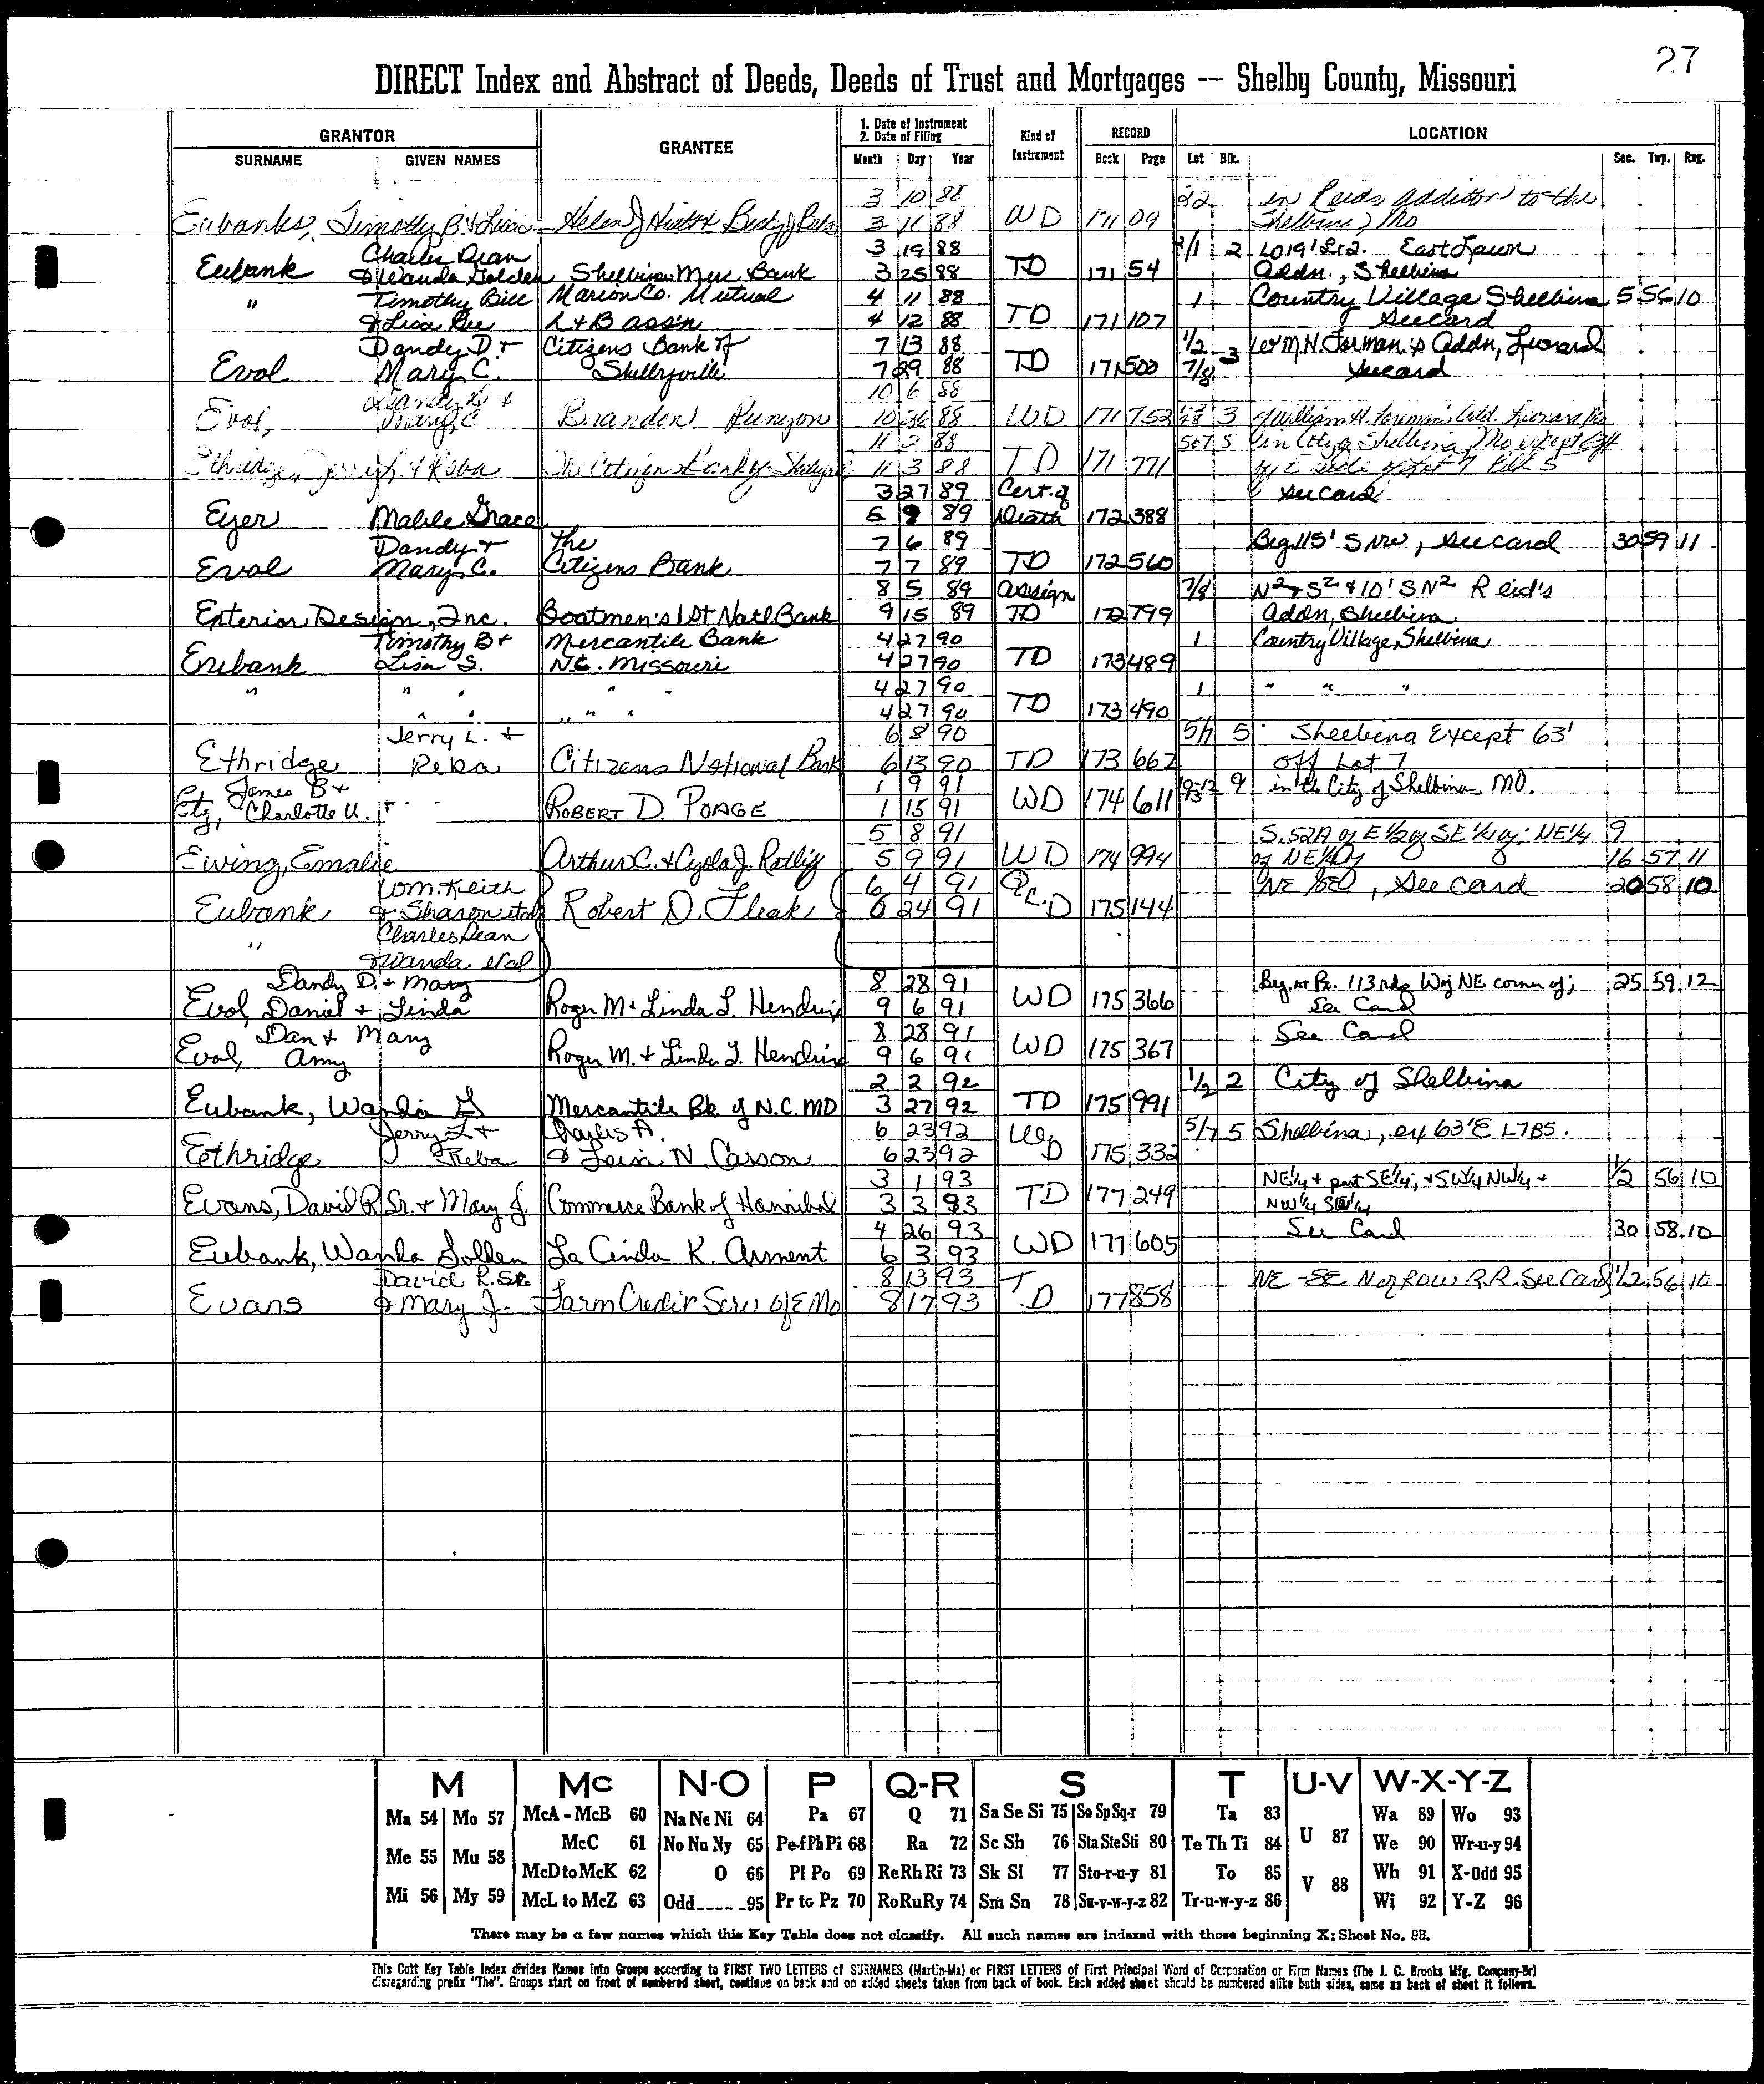 27
DIRECT Index and Abstract of Deeds, Deeds of Trust and Mortgages -- Shelby County, Missouri
GRANTOR GRANTEE 1. Date of Instrument 2. Date of Filing Kind of Instrument RECORD LOCATION
SURNAME GIVEN NAMES Month Day Year Book Page Lot Blk. Sec. Twp. Rng.
3 10 88 22 in Reids addition to the
Eubanks, Timothy B & Helen J & Becky J 3 11 88 WD 171 09 Shelbina, Mo
Charles Dean 3 19 88 2 East Lawn
Eubank & Wanda Golden Shelbina Merc. Bank 3 25 88 TD 171 54 Addn., Shelbina
" Timothy Bill Marion Co. Mutual 4 11 88 1 Country Village Shelbina 5 56 10
& Lisa L & B ass'n 4 12 88 TD 171 107 See card
Dandy D. & Citizens Bank of 7 13 88 1/2 3 Wm. H. Forman's Addn, Leonard
Eval Mary C. Shelbyville 7 29 88 TD 171 500 7/8 See card
Dandy D & 10 6 88
Eval, Mary C Brandon Runyon 10 26 88 WD 171 752 3 of William H. Foreman's Add. Leonard Mo
11 2 88 5&7 5 in City of Shelbina, Mo except 63 ft
Ethridge, Jerry L. & Reba The Citizens Bank of 11 3 88 TD 171 771 off E side of Lot 7 Blk 5
3 27 89 Cert. of See card
Eyer Mable Grace 5 9 89 Death 172 388
Dandy & The 7 6 89 Beg 115' S NW, See card 30 59 11
Eval Mary C. Citizens Bank 7 7 89 TD 172 560
8 5 89 Assign 7/8 N2 & S2 & 10' S N2 Reid's
Exterior Design, Inc. Boatmen's 1st Natl Bank 9 15 89 TD 172 799 Addn, Shelbina
Timothy B & Mercantile Bank 4 27 90 1 Country Village, Shelbina
Eubank Lisa S. N.C. Missouri 4 27 90 TD 173 489
" " " " 4 27 90 1 " " "
" " " " 4 27 90 TD 173 490
Jerry L. & 6 8 90 5/7 5 Shelbina Except 63'
Ethridge Reba Citizens National Bank 6 13 90 TD 173 662 off Lot 7
James B & 1 9 91 9 in the City of Shelbina, MO.
Etz, Charlotte U. ROBERT D. POAGE 1 15 91 WD 174 611
5 8 91 S. 52A of E 1/2 of SE 1/4 of; NE 1/4 9
Ewing, Emalie Arthur C. & Cyola J. Ratliff 5 9 91 WD 174 994 of NE 1/4 of 16 57 11
Wm. Keith 6 4 91 NE SE, See card 20 58 10
Eubank & Sharon etal Robert D. Fleak 6 24 91 Q.C.D 175 144
" Charles Dean
& Wanda etal
Dandy D. & Mary 8 28 91 Beg. at Pt. 113 rds W of NE corner of; 25 59 12
Eval, Daniel & Linda Roger M & Linda L. Hendrix 9 6 91 WD 175 366 See Card
Dan & Mary 8 28 91 See Card
Eval, Amy Roger M. & Linda L. Hendrix 9 6 91 WD 175 367
2 2 92 1/2 2 City of Shelbina
Eubank, Wanda G Mercantile Bk. of N.C. MO 3 27 92 TD 175 991
Jerry L & Charles A. 6 23 92 5/7 5 Shelbina, ex 63' E L7 B5.
Eethridge Reba & Leisa N. Carson 6 23 92 WD 175 332
3 1 93 NE 1/4 & part SE 1/4, & SW 1/4 NW 1/4 & 1/2 56 10
Evans, David R Sr. & Mary J. Commerce Bank of Hannibal 3 3 93 TD 177 249 NW 1/4 SW 1/4
4 26 93 See Card 30 58 10
Eubank, Wanda Golden La Cinda K. Arment 6 3 93 WD 177 605
David R. Sr. 8 13 93 NE - SE N of ROW R.R. See Card 1/2 56 10
Evans & Mary J. Farm Credit Serv of E Mo 8 17 93 TD 177 858
M Mc N-O P Q-R S T U-V W-X-Y-Z
Ma 54 Mo 57 McA - McB 60 Na Ne Ni 64 Pa 67 Q 71 Sa Se Si 75 So Sp Sq-r 79 Ta 83 Wa 89 Wo 93
McC 61 No Nu Ny 65 Pe-f Ph Pi 68 Ra 72 Sc Sh 76 Sta Ste Sti 80 Te Th Ti 84 U 87 We 90 Wr-u-y 94
Me 55 Mu 58 McD to McK 62 O 66 Pl Po 69 Re Rh Ri 73 Sk Sl 77 Sto-r-u-y 81 To 85 V 88 Wh 91 X-Odd 95
Mi 56 My 59 McL to McZ 63 Odd_____95 Pr to Pz 70 Ro Ru Ry 74 Sm Sn 78 Su-v-w-y-z 82 Tr-u-w-y-z 86 Wi 92 Y-Z 96
There may be a few names which this Key Table does not classify. All such names are indexed with those beginning X; Sheet No. 95.
This Cott Key Table Index divides Names into Groups according to FIRST TWO LETTERS of SURNAMES (Martin-Ma) or FIRST LETTERS of First Principal Word of Corporation or Firm Names (The J. C. Brooks Mfg. Company-Br)
disregarding prefix "The". Groups start on front of numbered sheet, continue on back and on added sheets taken from back of book. Each added sheet should be numbered alike both sides, same as back of sheet it follows.